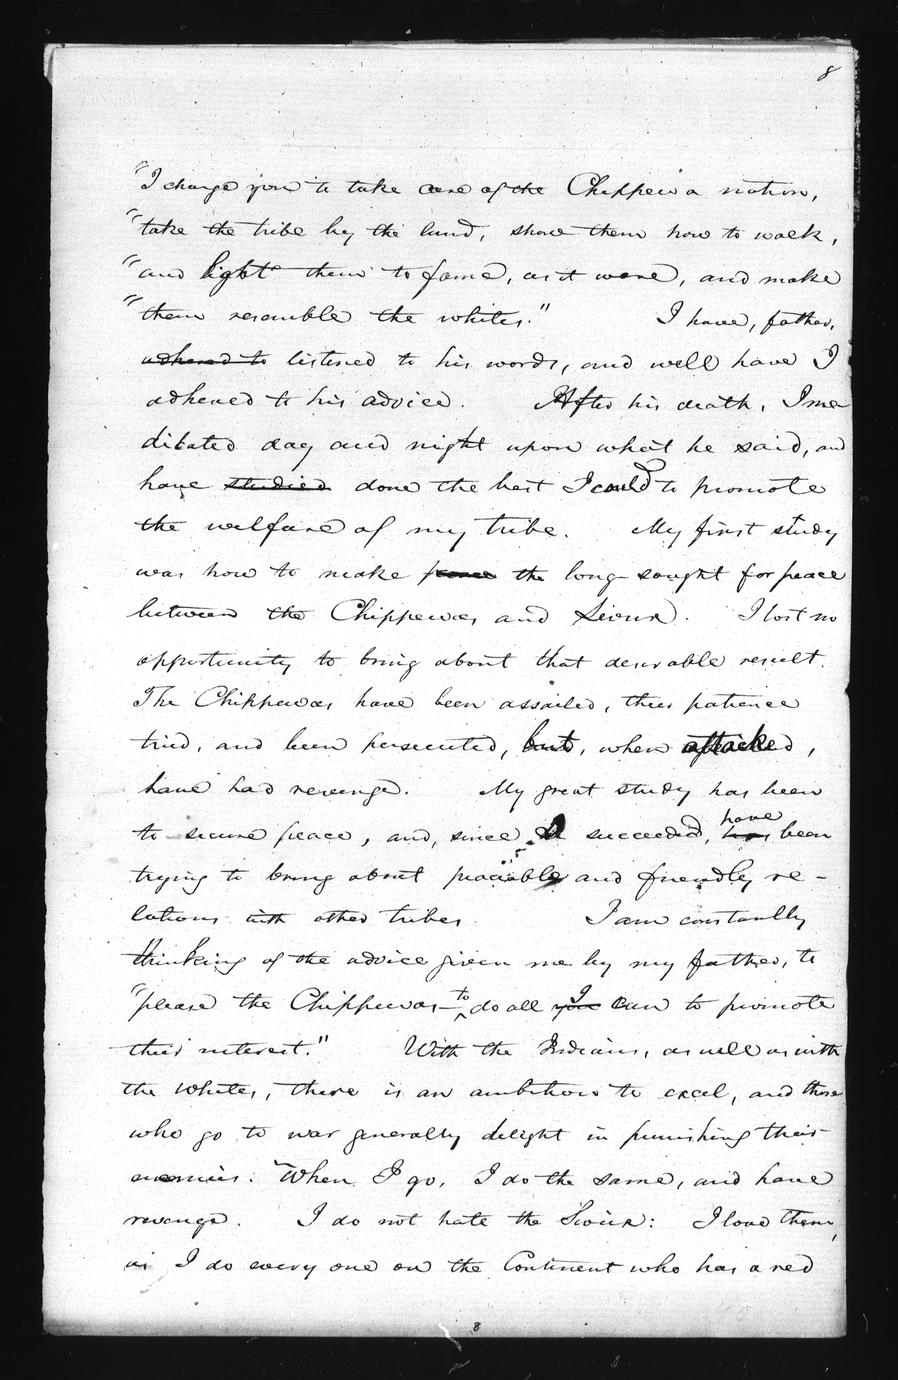 8
"I charge you to take care of the Chippewa nation,
"take the tribe by the hand, show them how to walk,
"and light them to fame, as it were, and make
"them resemble the whites." I have, father,
adhered to listened to his words, and well have I
adhered to his advice. After his death, I me
ditated day and night upon what he said, and
have studied done the best I could to promote
the welfare of my tribe. My first study
was how to make peace the long-sought for peace
between the Chippewas and Sioux. I lost no
opportunity to bring about that desirable result.
The Chippewas have been assailed, their patience
tried, and been persecuted, but, when attacked,
have had revenge. My great study has been
to secure peace, and, since succeeded, has have been
trying to bring about peaceable and friendly re-
lations with other tribes. I am constantly
thinking of the advice given me by my father, to
"please the Chippewas - to do all you I can to promote
their interest." With the Indians, as well as with
the whites, there is an ambition to excel, and those
who go to war generally delight in punishing their
enemies. When I go, I do the same, and have
revenge. I do not hate the Sioux: I love them,
as I do every one on the Continent who has a red
8